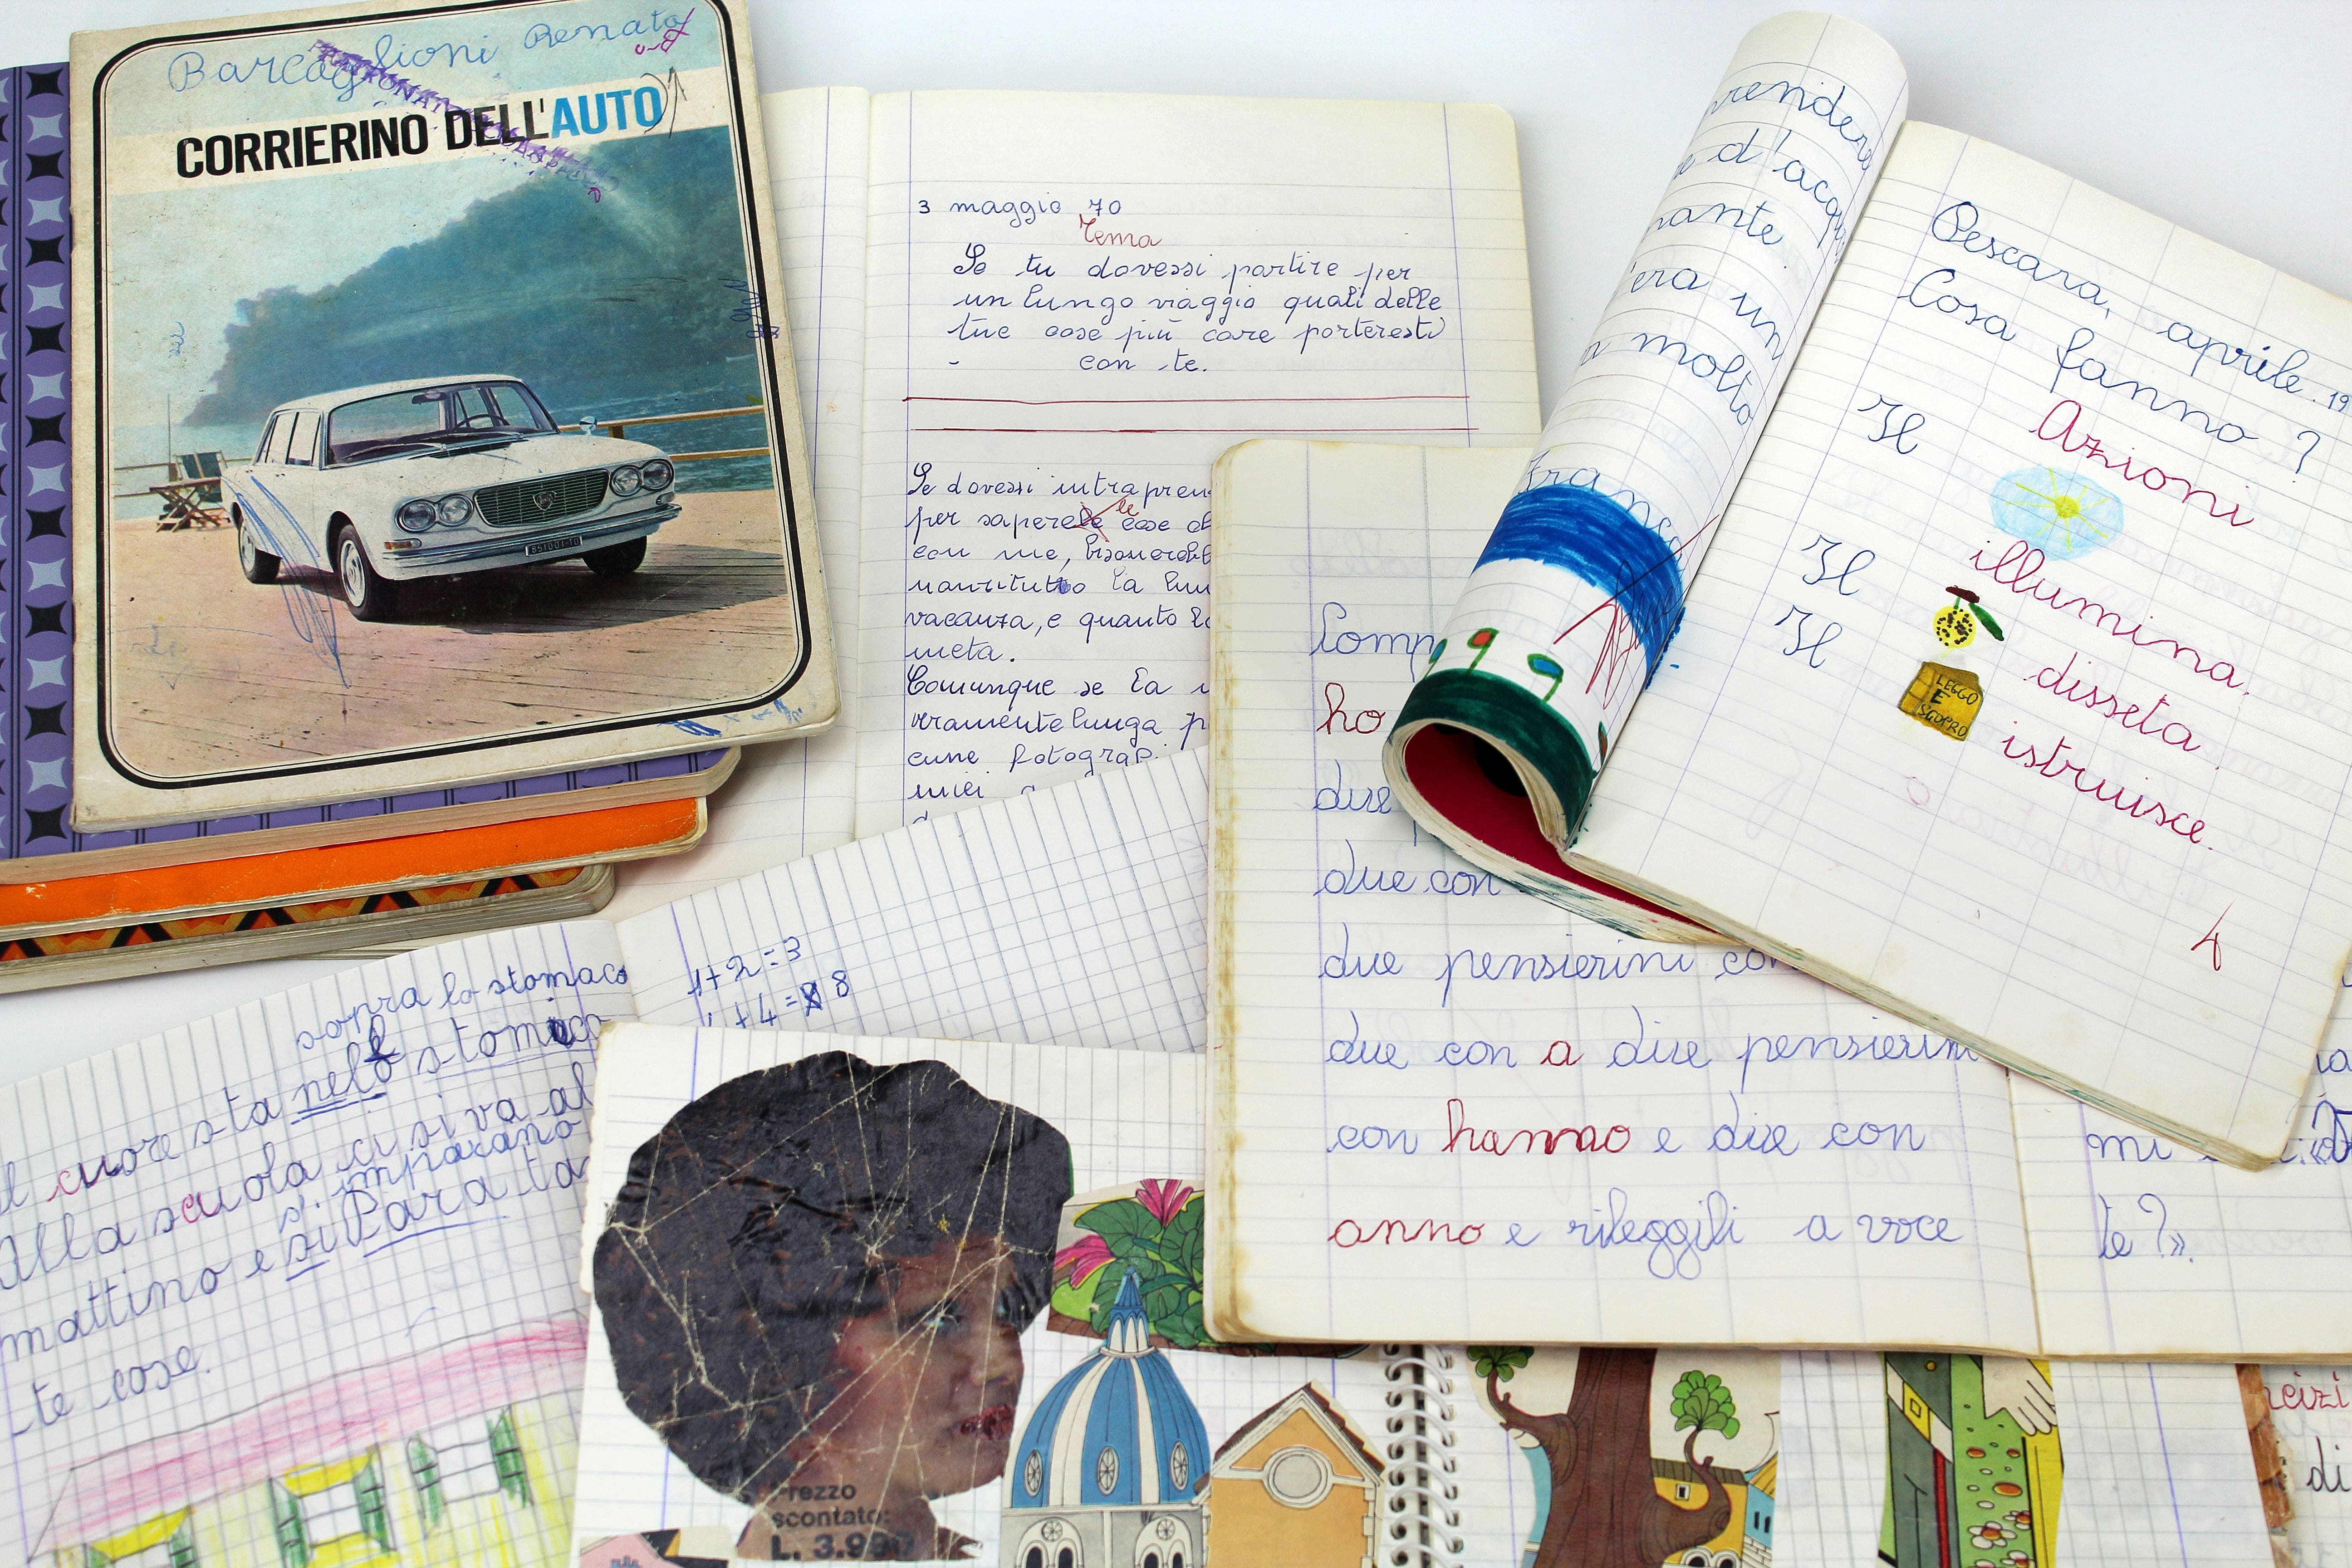 Barcaglioni Renato
CORRIERINO DELL'AUTO
851001 TO
3 maggio 70
Tema
Se tu dovessi partire per
un lungo viaggio quali delle
tue cose più care porteresti
con te.
Se dovessi intrapren
per sapere le cose
con me,
la
vacanza, e quanto
meta.
Comunque se la
veramente lunga p
cune fotograf
miei
rendere
e d'acq
nante
'era un
a molto
franco
Pescara, aprile. 19
Cosa fanno?
Azioni
Il
illumina.
Il
disseta.
Il
LEGGO
E
SCOPRO
istruisce.
4
Comp
ho
due
due con
due pensierini con
due con a due pensierini
con hanno e due con
anno e rileggili a voce
mi
te?».
1+2=3
+4= 8
sopra lo stomaco
Il cuore sta nello stomaco
Alla scuola ci si va al
si imparano
mattino e si Para ta
te cose.
Prezzo
scontato:
L. 3.990
cizi
di